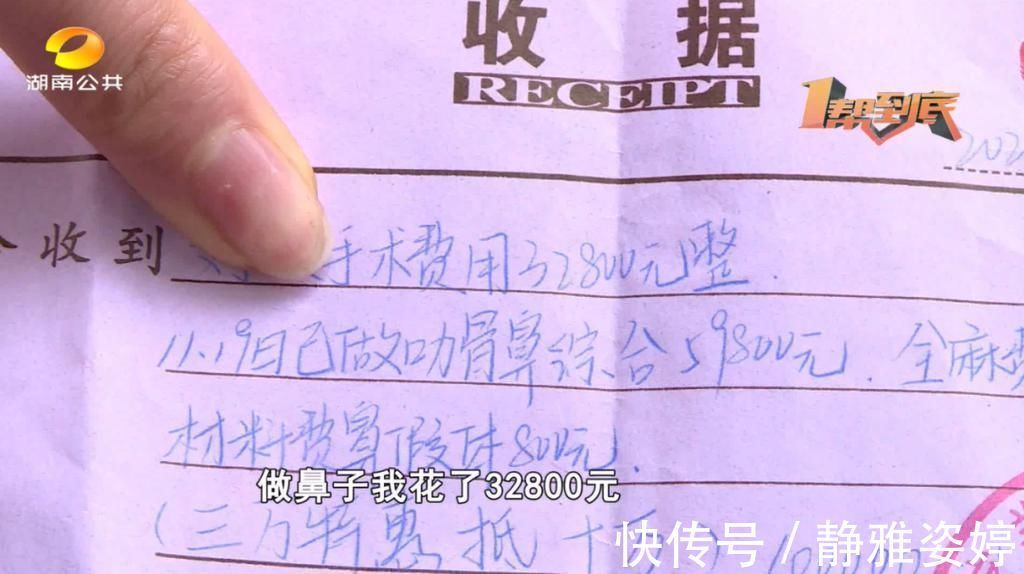 湖南公共
收 据
RECEIPT
1帮到底
202
收到 手术费用32800元整.
11.19日已做肋骨鼻综合59800元. 全麻费
材料费鼻假体800元.
做鼻子我花了32800元
(三万特惠抵
快传号 / 静雅姿婷